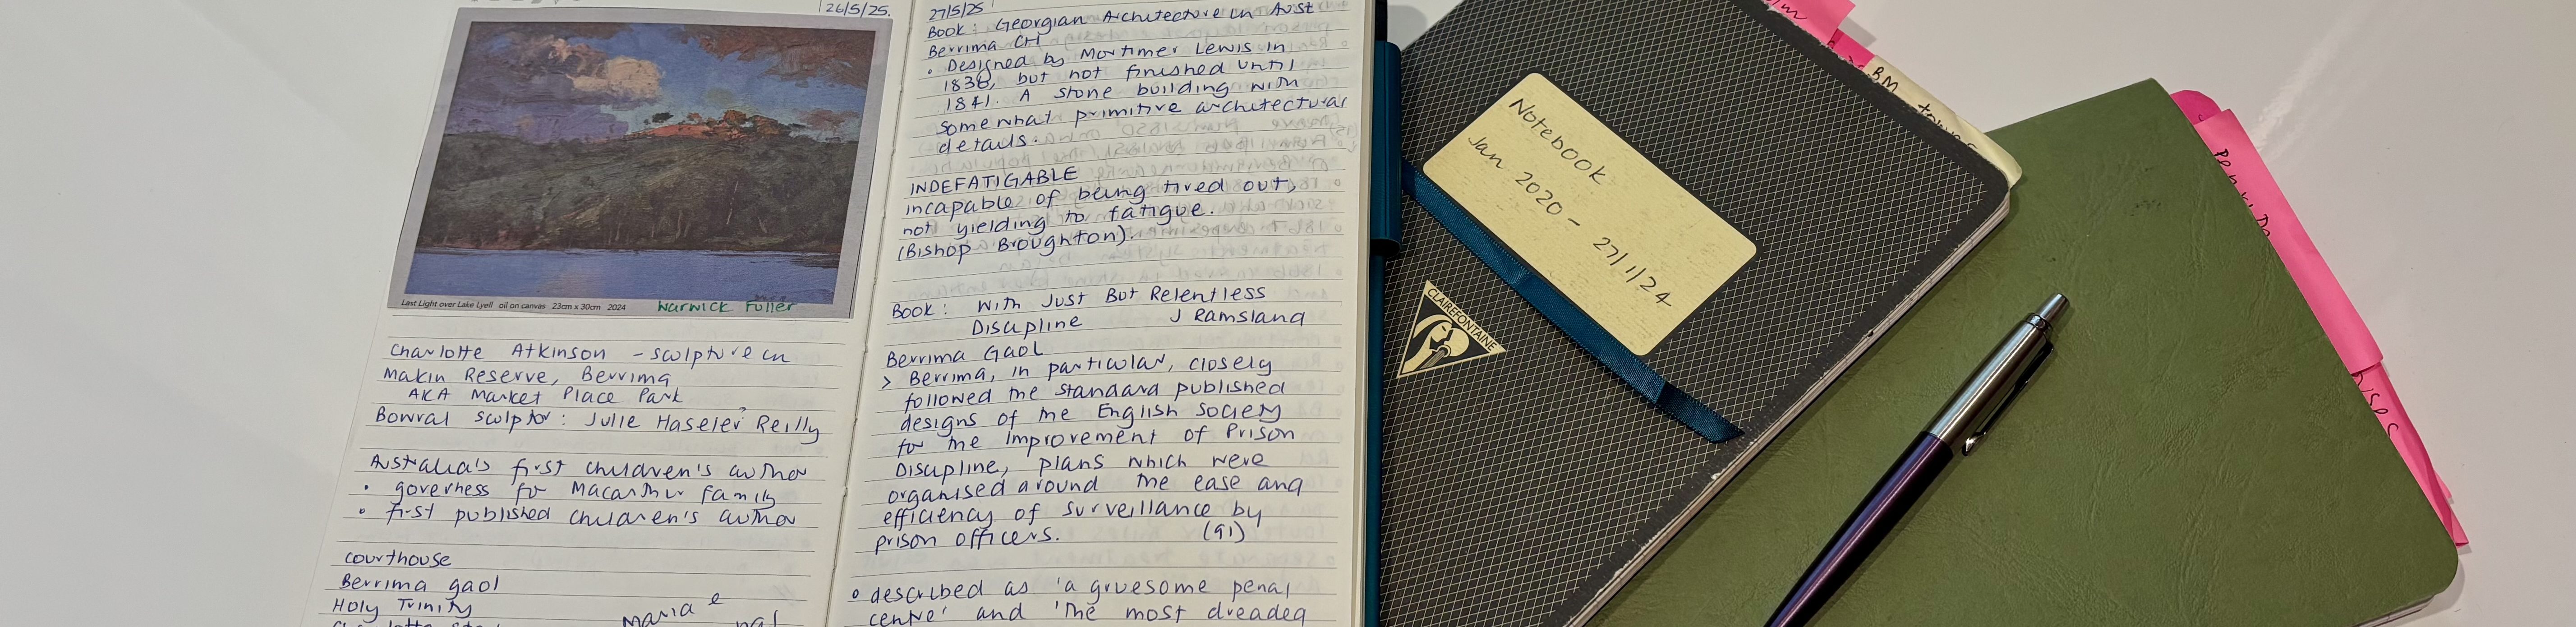 26/5/25.
Last Light over Lake Lyell oil on canvas 23cm x 30cm 2024
Warwick Fuller
Charlotte Atkinson - sculpture in
Makin Reserve, Berrima
AKA Market Place Park
Bowral sculptor: Julie Haseler Reilly
?
Australia's first children's author
• governess for Macarthur family
• first published children's author
courthouse
Berrima gaol
Holy Trinity
Maria
27/5/25
Book: Georgian Architecture in Aust
Berrima CH
• Designed by Mortimer Lewis in
1836, but not finished until
1841. A stone building with
somewhat primitive architectural
details.
INDEFATIGABLE
incapable of being tired out,
not yielding to fatigue.
(Bishop Broughton).
Book: With Just But Relentless
Discipline J Ramsland
Berrima Gaol
> Berrima, in particular, closely
followed the standard published
designs of the English Society
for the Improvement of Prison
Discipline, plans which were
organised around the ease and
efficiency of surveillance by
prison officers. (91)
• described as 'a gruesome penal
centre' and 'the most dreaded
Notebook
Jan 2020 - 27/1/24
CLAIREFONTAINE
BM